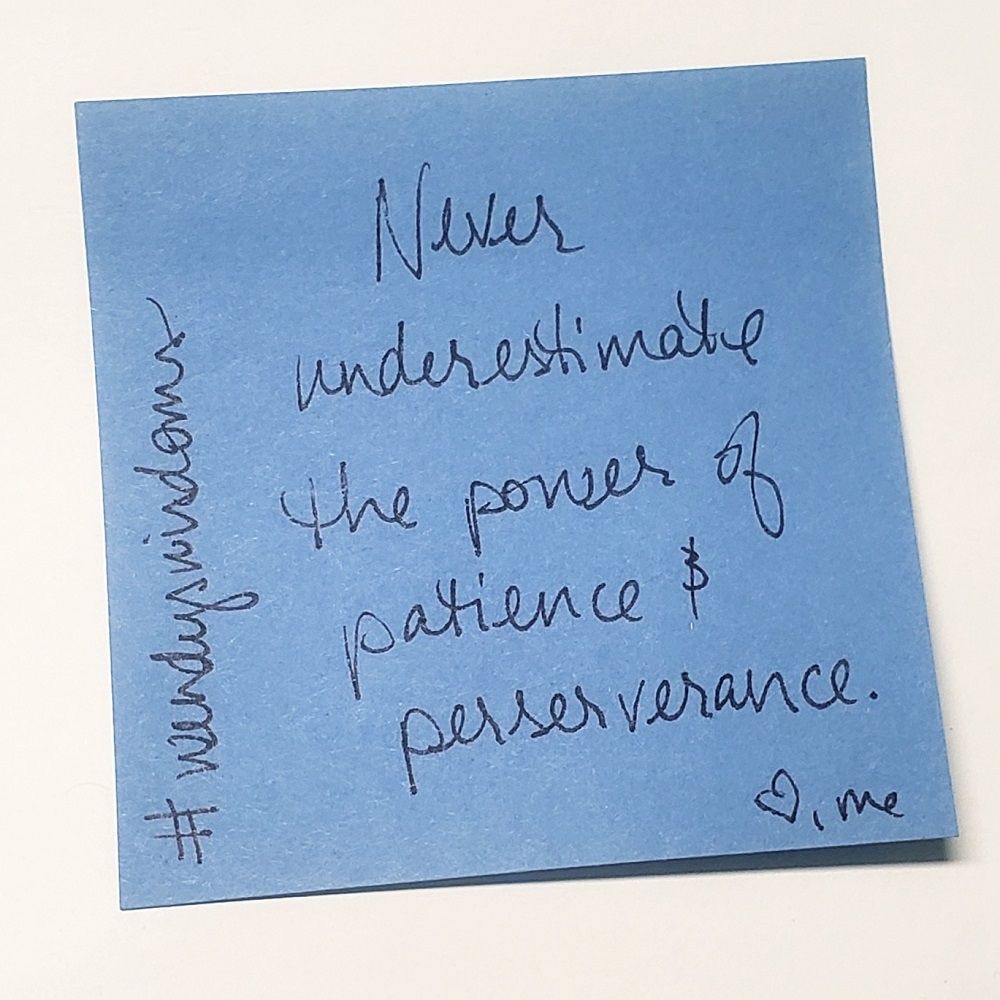 Never
underestimate
the power of
patience &
perserverance.
♡, me
#wendyswisdoms